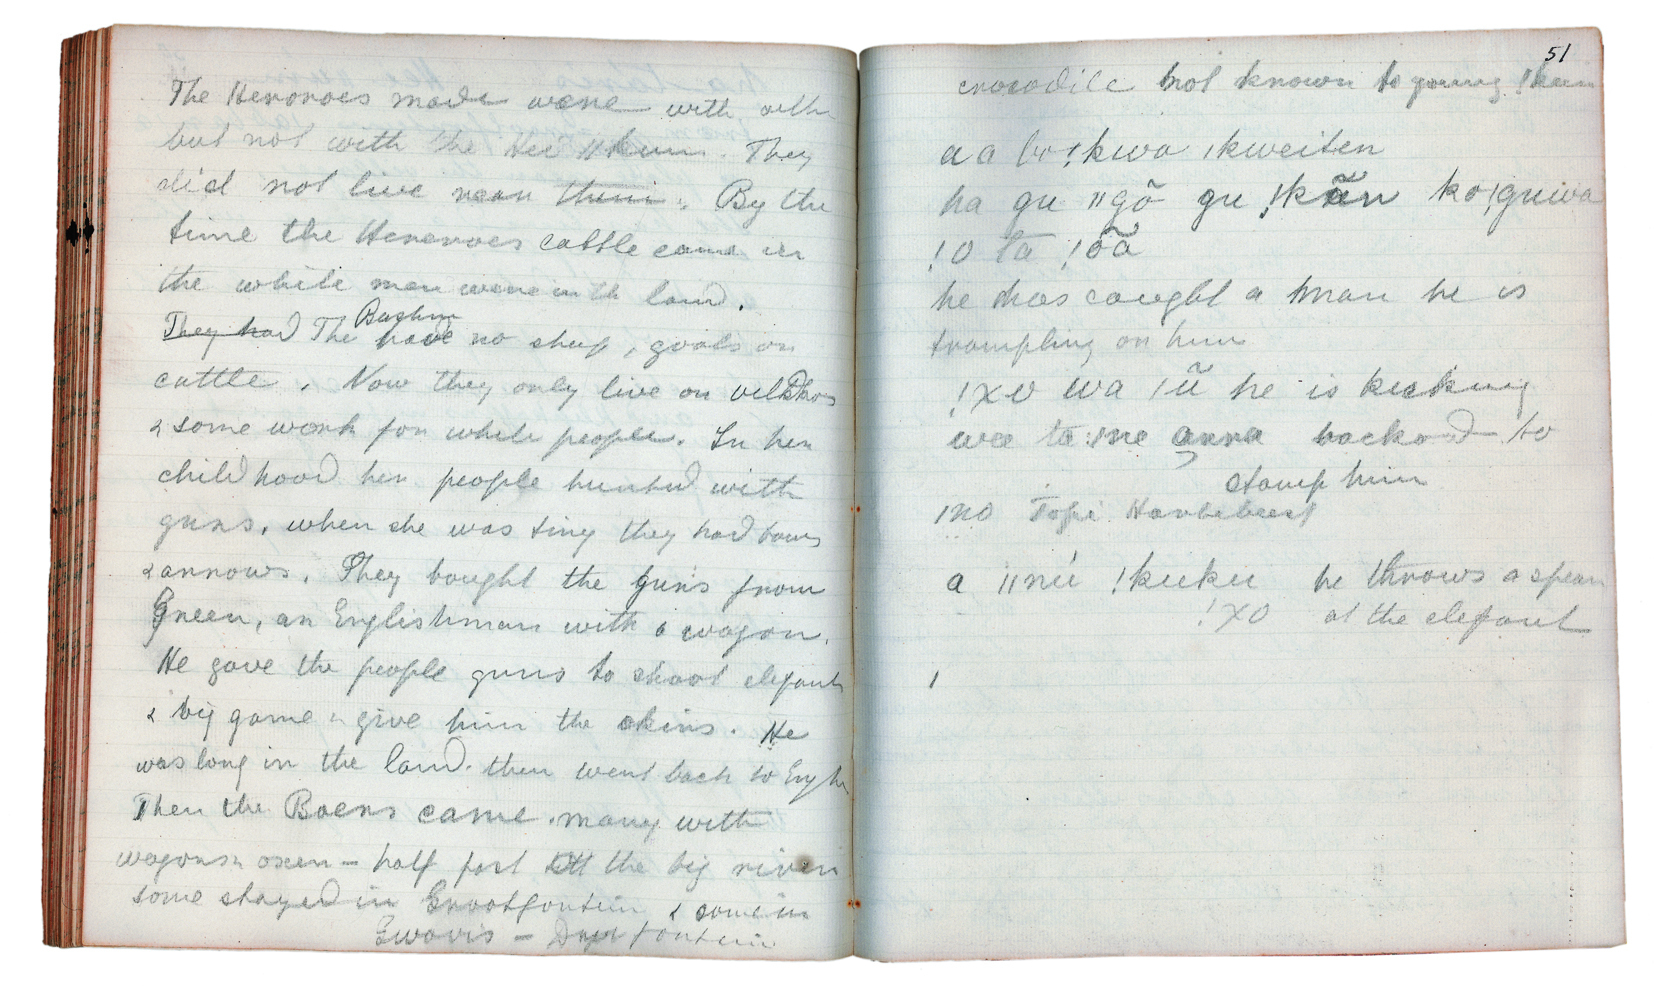 The Hereroes made were with oth
but not with the Hei //kum. They
did not live near them. By the
time the Hereroes cattle came in
the while men were in th land.
They had The Bushm have no sheep, goats or
cattle. Now they only live on veldkhos
& some work for while people. In her
childhood her people hunted with
guns, when she was tiny they had bows
& arrows. They bought the guns from
Green, an Englishman with a wagon.
He gave the people guns to shoot elefants
& big game & give him the skins. He
was long in the land. then went back to Engl
Then the Boers came. many with
wagons & oxen – half past the big river
some stayed in Grootfontein & some in
Gwovis – fontein
51
crocodile not known to young !kun
a a !kwa ikweiten
ha gu //gõ gu !kãn ko!guiwa
!o ta !õã
he has caught a man he is
trampling on him
!xo wa /ũ he is kicking
wa ta :/ne anna backard to
stamp him
/no Topi Hartebeest
a //nú !kuku he throws a spear
!xo at the elefant
/